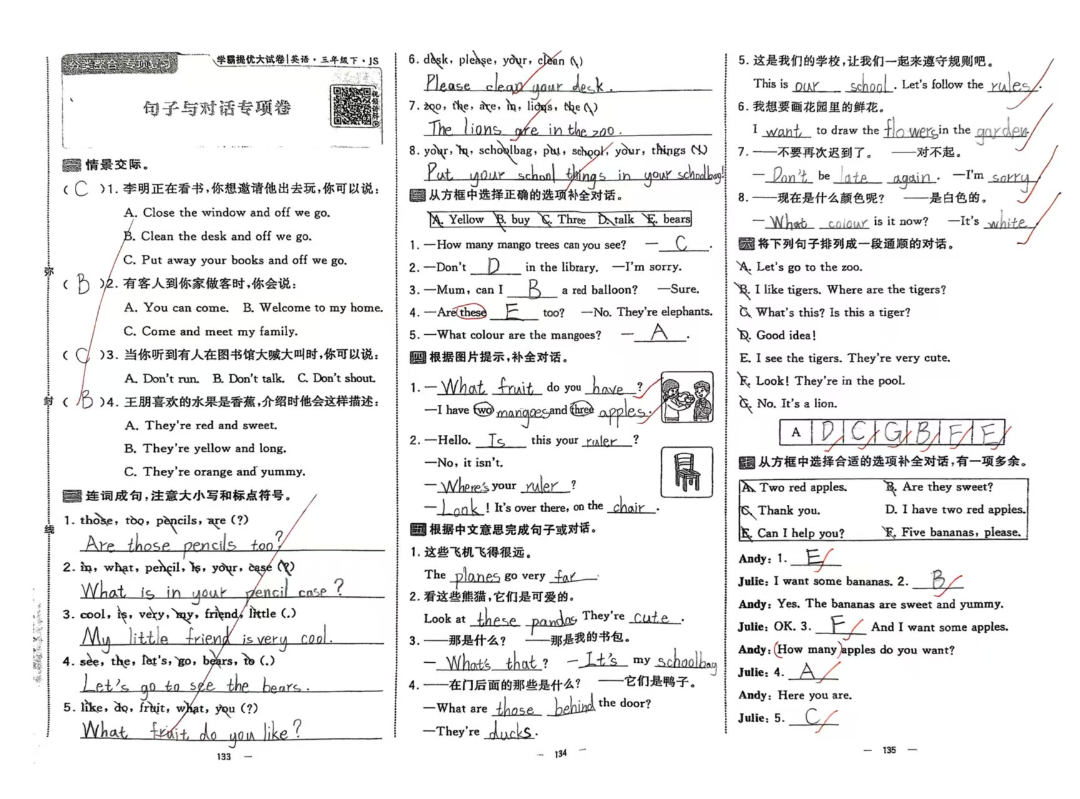 分类整合 专项复习
学霸提优大试卷|英语·三年级下·JS
句子与对话专项卷
一 情景交际。
( C )1. 李明正在看书,你想邀请他出去玩,你可以说:
A. Close the window and off we go.
B. Clean the desk and off we go.
C. Put away your books and off we go.
( B )2. 有客人到你家做客时,你会说:
A. You can come. B. Welcome to my home.
C. Come and meet my family.
( C )3. 当你听到有人在图书馆大喊大叫时,你可以说:
A. Don't run. B. Don't talk. C. Don't shout.
( B )4. 王朋喜欢的水果是香蕉,介绍时他会这样描述:
A. They're red and sweet.
B. They're yellow and long.
C. They're orange and yummy.
二 连词成句,注意大小写和标点符号。
1. those, too, pencils, are (?)
Are those pencils too?
2. in, what, pencil, is, your, case (?)
What is in your pencil case ?
3. cool, is, very, my, friend, little (.)
My little friend is very cool.
4. see, the, let's, go, bears, to (.)
Let's go to see the bears.
5. like, do, fruit, what, you (?)
What fruit do you like?
弥
封
线
133
6. desk, please, your, clean (.)
Please clean your desk.
7. zoo, the, are, in, lions, the (.)
The lions are in the zoo.
8. your, in, schoolbag, put, school, your, things (.)
Put your school things in your schoolbag!
三 从方框中选择正确的选项补全对话。
A. Yellow B. buy C. Three D. talk E. bears
1. —How many mango trees can you see? — C .
2. —Don't D in the library. —I'm sorry.
3. —Mum, can I B a red balloon? —Sure.
4. —Are these E too? —No. They're elephants.
5. —What colour are the mangoes? — A .
四 根据图片提示,补全对话。
1. — What fruit do you have ?
—I have two mangoes and three apples.
2. —Hello. Is this your ruler ?
—No, it isn't.
— Where's your ruler ?
— Look ! It's over there, on the chair .
五 根据中文意思完成句子或对话。
1. 这些飞机飞得很远。
The planes go very far .
2. 看这些熊猫,它们是可爱的。
Look at these pandas They're cute .
3. ——那是什么? ——那是我的书包。
— What's that ? — It's my schoolbag
4. ——在门后面的那些是什么? ——它们是鸭子。
—What are those behind the door?
—They're ducks.
134
5. 这是我们的学校,让我们一起来遵守规则吧。
This is our school . Let's follow the rules .
6. 我想要画花园里的鲜花。
I want to draw the flowers in the garden
7. ——不要再次迟到了。 ——对不起。
— Don't be late again . —I'm sorry
8. ——现在是什么颜色呢? ——是白色的。
— What colour is it now? —It's white
六 将下列句子排列成一段通顺的对话。
A. Let's go to the zoo.
B. I like tigers. Where are the tigers?
C. What's this? Is this a tiger?
D. Good idea!
E. I see the tigers. They're very cute.
F. Look! They're in the pool.
G. No. It's a lion.
A D C G B F E
七 从方框中选择合适的选项补全对话,有一项多余。
A. Two red apples. B. Are they sweet?
C. Thank you. D. I have two red apples.
E. Can I help you? F. Five bananas, please.
Andy: 1. E
Julie: I want some bananas. 2. B
Andy: Yes. The bananas are sweet and yummy.
Julie: OK. 3. F And I want some apples.
Andy: How many apples do you want?
Julie: 4. A
Andy: Here you are.
Julie: 5. C
135